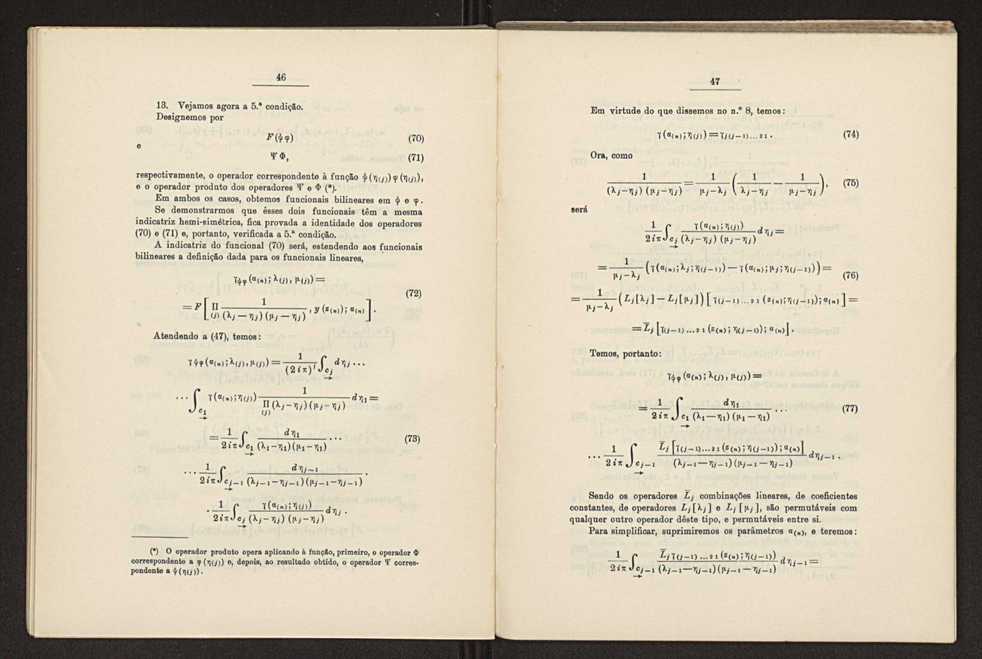 46
13. Vejamos agora a 5.ª condição.
Designemos por
F(ψφ) (70)
e
ΨΦ, (71)
respectivamente, o operador correspondente à função ψ(η(j))φ(η(j)),
e o operador produto dos operadores Ψ e Φ (*).
Em ambos os casos, obtemos funcionais bilineares em ψ e φ.
Se demonstrarmos que êsses dois funcionais têm a mesma
indicatriz hemi-simétrica, fica provada a identidade dos operadores
(70) e (71) e, portanto, verificada a 5.ª condição.
A indicatriz do funcional (70) será, estendendo aos funcionais
bilineares a definição dada para os funcionais lineares,
γψφ(α(n); λ(j), μ(j)) =
= F[∏(j) 1/((λj − ηj)(μj − ηj)), y(z(n)); α(n)]. (72)
Atendendo a (47), temos:
γψφ(α(n); λ(j), μ(j)) = 1/(2iπ)^j ∫cj dηj ...
... ∫c1 γ(α(n); η(j)) 1/(∏(j)(λj − ηj)(μj − ηj)) dη1 =
= 1/2iπ ∫c1 dη1/((λ1 − η1)(μ1 − η1)) ... (73)
... 1/2iπ ∫cj−1 dηj−1/((λj−1 − ηj−1)(μj−1 − ηj−1)) .
. 1/2iπ ∫cj γ(α(n); η(j))/((λj − ηj)(μj − ηj)) dηj .
(*) O operador produto opera aplicando à função, primeiro, o operador Φ
correspondente a φ(η(j)) e, depois, ao resultado obtido, o operador Ψ corres-
pondente a ψ(η(j)).
47
Em virtude do que dissemos no n.º 8, temos:
γ(α(n); η(j)) = γj(j−1)...21 . (74)
Ora, como
1/((λj − ηj)(μj − ηj)) = 1/(μj − λj) (1/(λj − ηj) − 1/(μj − ηj)), (75)
será
1/2iπ ∫cj γ(α(n); η(j))/((λj − ηj)(μj − ηj)) dηj =
= 1/(μj − λj) (γ(α(n); λj; η(j−1)) − γ(α(n); μj; η(j−1))) = (76)
= 1/(μj − λj) (Lj[λj] − Lj[μj]) [γ(j−1)...21 (z(n); η(j−1)); α(n)] =
= L̄j [γ(j−1)...21 (z(n); η(j−1)); α(n)] .
Temos, portanto:
γψφ(α(n); λ(j), μ(j)) =
= 1/2iπ ∫c1 dη1/((λ1 − η1)(μ1 − η1)) ... (77)
... 1/2iπ ∫cj−1 L̄j [γ(j−1)...21 (z(n); η(j−1)); α(n)]/((λj−1 − ηj−1)(μj−1 − ηj−1)) dηj−1 .
Sendo os operadores L̄j combinações lineares, de coeficientes
constantes, de operadores Lj[λj] e Lj[μj], são permutáveis com
qualquer outro operador dêste tipo, e permutáveis entre si.
Para simplificar, suprimiremos os parâmetros α(n), e teremos:
1/2iπ ∫cj−1 L̄j γ(j−1)...21 (z(n); η(j−1))/((λj−1 − ηj−1)(μj−1 − ηj−1)) dηj−1 =